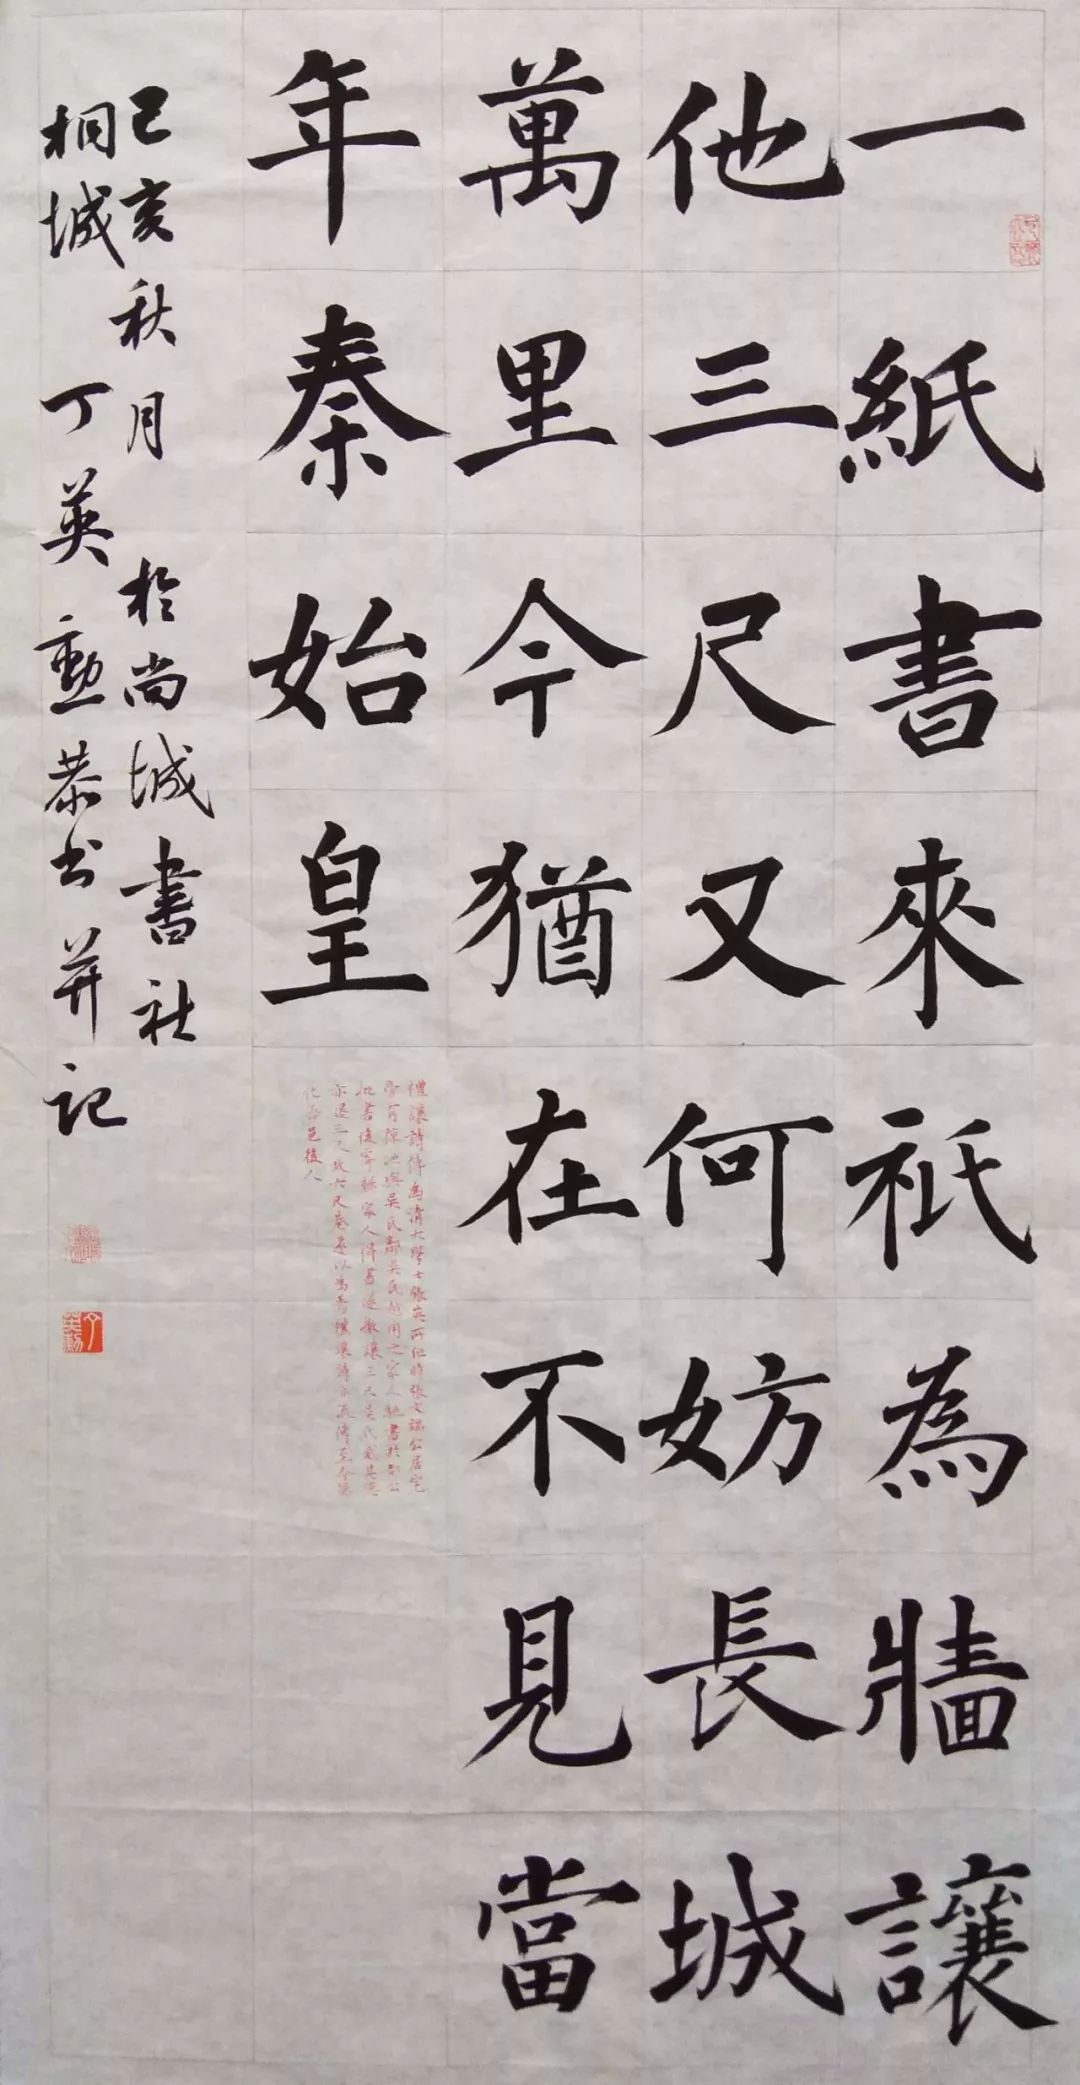 一紙書來祇為牆讓
他三尺又何妨長城
萬里今猶在不見當
年秦始皇
禮讓詩傳為清大學士張英所作時張文端公居宅
旁有隙地與吳氏鄰吳氏越用之家人馳書於都公
批書後寄歸家人得書遂撤讓三尺吳氏感其義
亦退三尺故六尺巷遂以為名禮讓詩亦流傳至今
化吾邑後人
己亥秋月於尚城書社
桐城丁英勳恭书并記
丁英勳